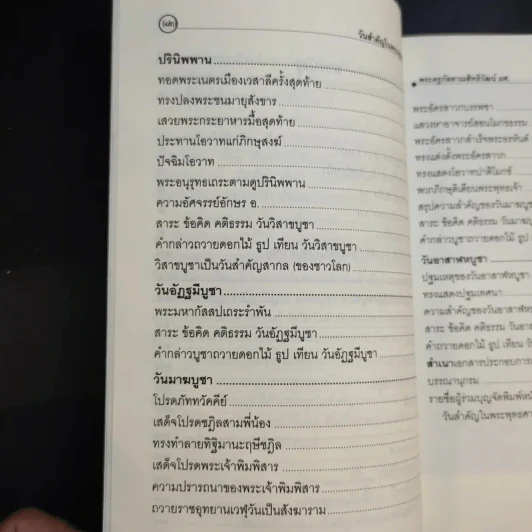 วันสำคัญใน
ปรินิพพาน
ทอดพระเนตรเมืองเวสาลีครั้งสุดท้าย
ทรงปลงพระชนมายุสังขาร
เสวยพระกระยาหารมื้อสุดท้าย
ประทานโอวาทแก่ภิกษุสงฆ์
ปัจฉิมโอวาท
พระอนุรุทธเถระตามดูปรินิพพาน
ความอัศจรรย์อักษร อ.
สาระ ข้อคิด คติธรรม วันวิสาขบูชา
คำกล่าวถวายดอกไม้ ธูป เทียน วันวิสาขบูชา
วิสาขบูชาเป็นวันสำคัญสากล (ของชาวโลก)
วันอัฏฐมีบูชา
พระมหากัสสปเถระรำพัน
สาระ ข้อคิด คติธรรม วันอัฏฐมีบูชา
คำกล่าวบูชาถวายดอกไม้ ธูป เทียน วันอัฏฐมีบูชา
วันมาฆบูชา
โปรดภัททวัคคีย์
เสด็จโปรดชฎิลสามพี่น้อง
ทรงทำลายทิฐิมานะฤษีชฎิล
เสด็จโปรดพระเจ้าพิมพิสาร
ความปรารถนาของพระเจ้าพิมพิสาร
ถวายราชอุทยานเวฬุวันเป็นสังฆาราม
พระอัครสาวกบรรพชา
แสวงหาอาจารย์สอนโมกขธรรม
พระอัครสาวกสำเร็จพระอรหันต์
ทรงแต่งตั้งพระอัครสาวก
ทรงแสดงโอวาทปาติโมกข์
พวกภิกษุติเตียนพระพุทธเจ้า
สรุปความสำคัญของวันมาฆบูช
สาระ ข้อคิด คติธรรม วันมาฆบู
คำกล่าวบูชาถวายดอกไม้ ธูป
วันอาสาฬหบูชา
ปฐมเหตุของวันอาสาฬหบูชา
ทรงแสดงปฐมเทศนา
ความสำคัญของวันอาสาฬหบู
สาระ ข้อคิด คติธรรม วันอาสา
คำถวายดอกไม้ ธูป เทียน วั
สำเนาเอกสารประกอบการ
บรรณานุกรม
รายชื่อผู้ร่วมบุญจัดพิมพ์หนั
วันสำคัญในพระพุทธศา